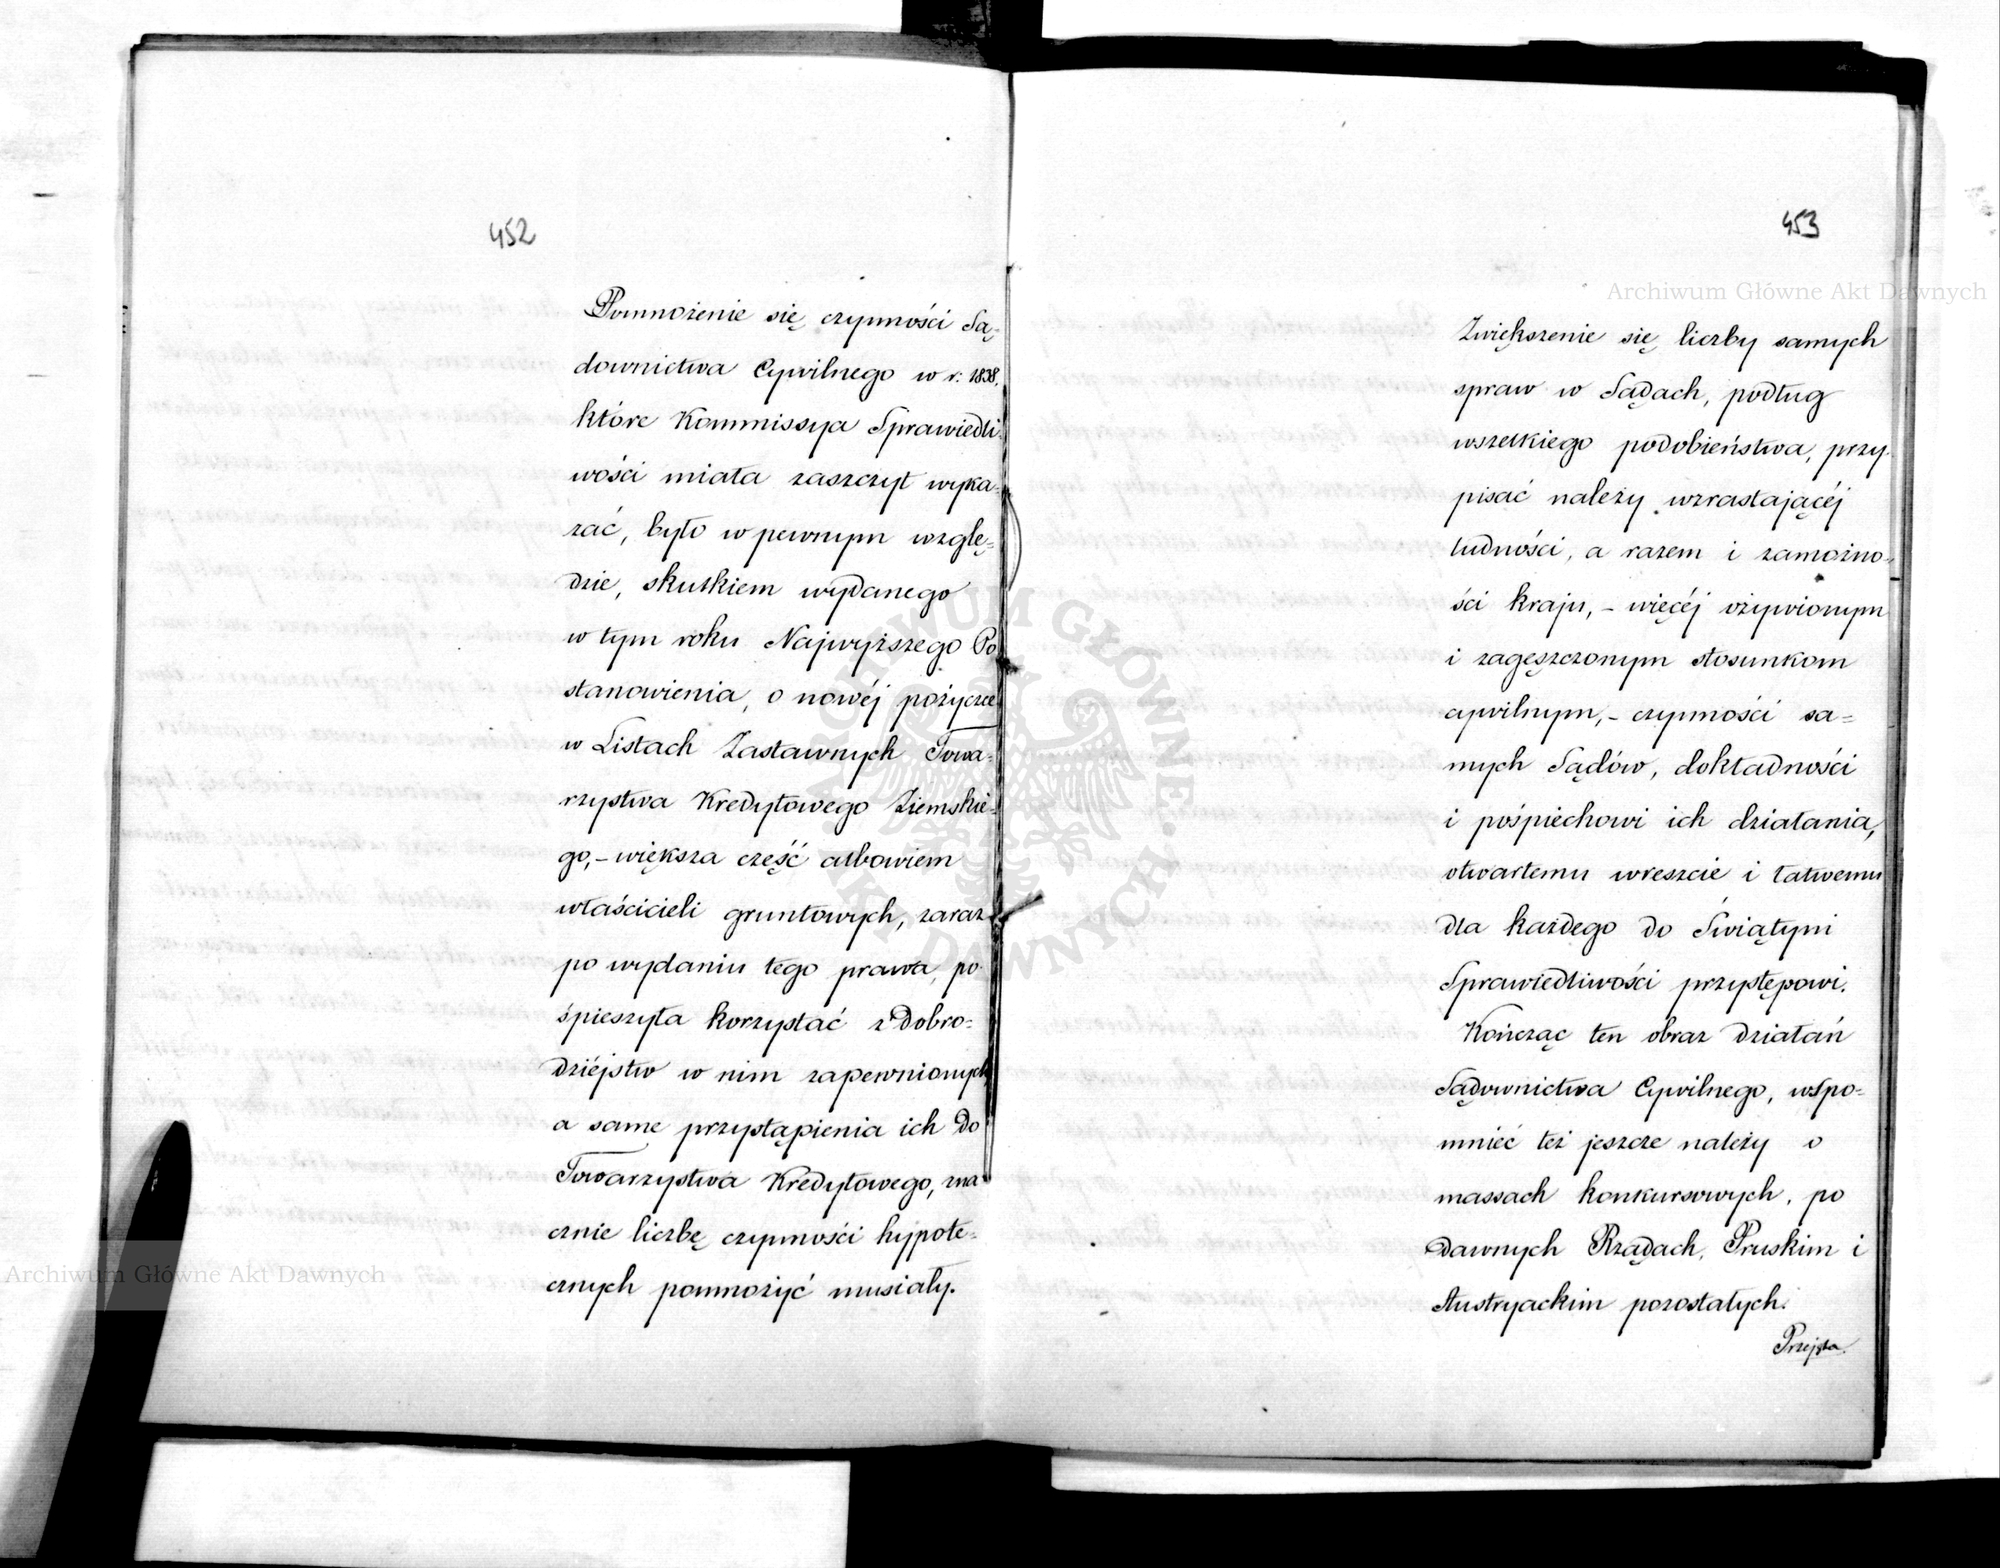 452
Pomnożenie się czynności Są=
downictwa Cywilnego w r: 1838,
które Kommissya Sprawiedli
wości miała zaszczyt wyka=
zać, było w pewnym wzglę=
dzie, skutkiem wydanego
w tym roku Najwyższego Po
stanowienia, o nowéj pożyczce
w Listach Zastawnych Towa=
rzystwa Kredytowego Ziemskie=
go,– większa część albowiem
właścicieli gruntowych, zaraz
po wydaniu tego prawa, po=
śpieszyła korzystać z dobro=
dziéjstw w nim zapewnionych
a same przystąpienia ich do
Towarzystwa Kredytowego, zna=
cznie liczbę czynności hypote=
cznych pomnożyć musiały.
453
Zwiększenie się liczby samych
spraw w Sądach, podług
wszelkiego podobieństwa, przy
pisać należy wzrastającéj
ludności, a razem i zamożno=
ści kraju,– więcéj ożywionym
i zagęszczonym stosunkom
cywilnym,– czynności sa=
mych Sądów, dokładności
i pośpiechowi ich działania,
otwartemu wreszcie i łatwemu
dla każdego do Świątyni
Sprawiedliwości przystępowi.
Kończąc ten obraz działań
Sądownictwa Cywilnego, wspo=
mnieć też jeszcze należy o
massach konkursowych, po
dawnych Rządach, Pruskim i
Austryackim pozostałych.
Przejęta
Archiwum Główne Akt Dawnych
Archiwum Główne Akt Dawnych
ARCHIWUM GŁÓWNE AKT DAWNYCH